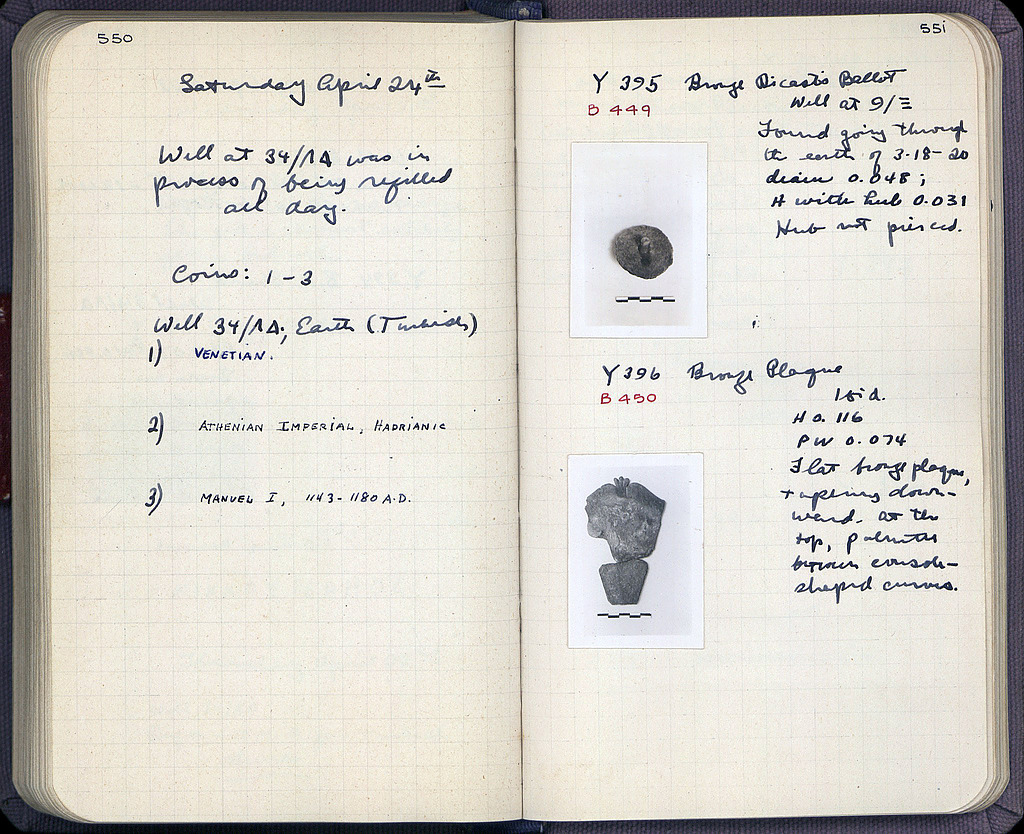 550
Saturday April 24th
Well at 34/ΛΔ was in
process of being refilled
all day.
Coins: 1 - 3
Well 34/ΛΔ; Earth (Turkish)
1) VENETIAN.
2) ATHENIAN IMPERIAL, HADRIANIC
3) MANUEL I, 1143-1180 A.D.
551
Y 395 Bronze Dicast's Ballot
B 449
Well at 9/Ξ
Found going through
the earth of 3-18-20
diam 0.048;
H with hub 0.031
Hub not pierced.
Y 396 Bronze Plaque
B 450
Ibid.
H 0.116
PW 0.074
Flat bronze plaque,
tapering down-
ward. At the
top, palmette
between console-
shaped curves.